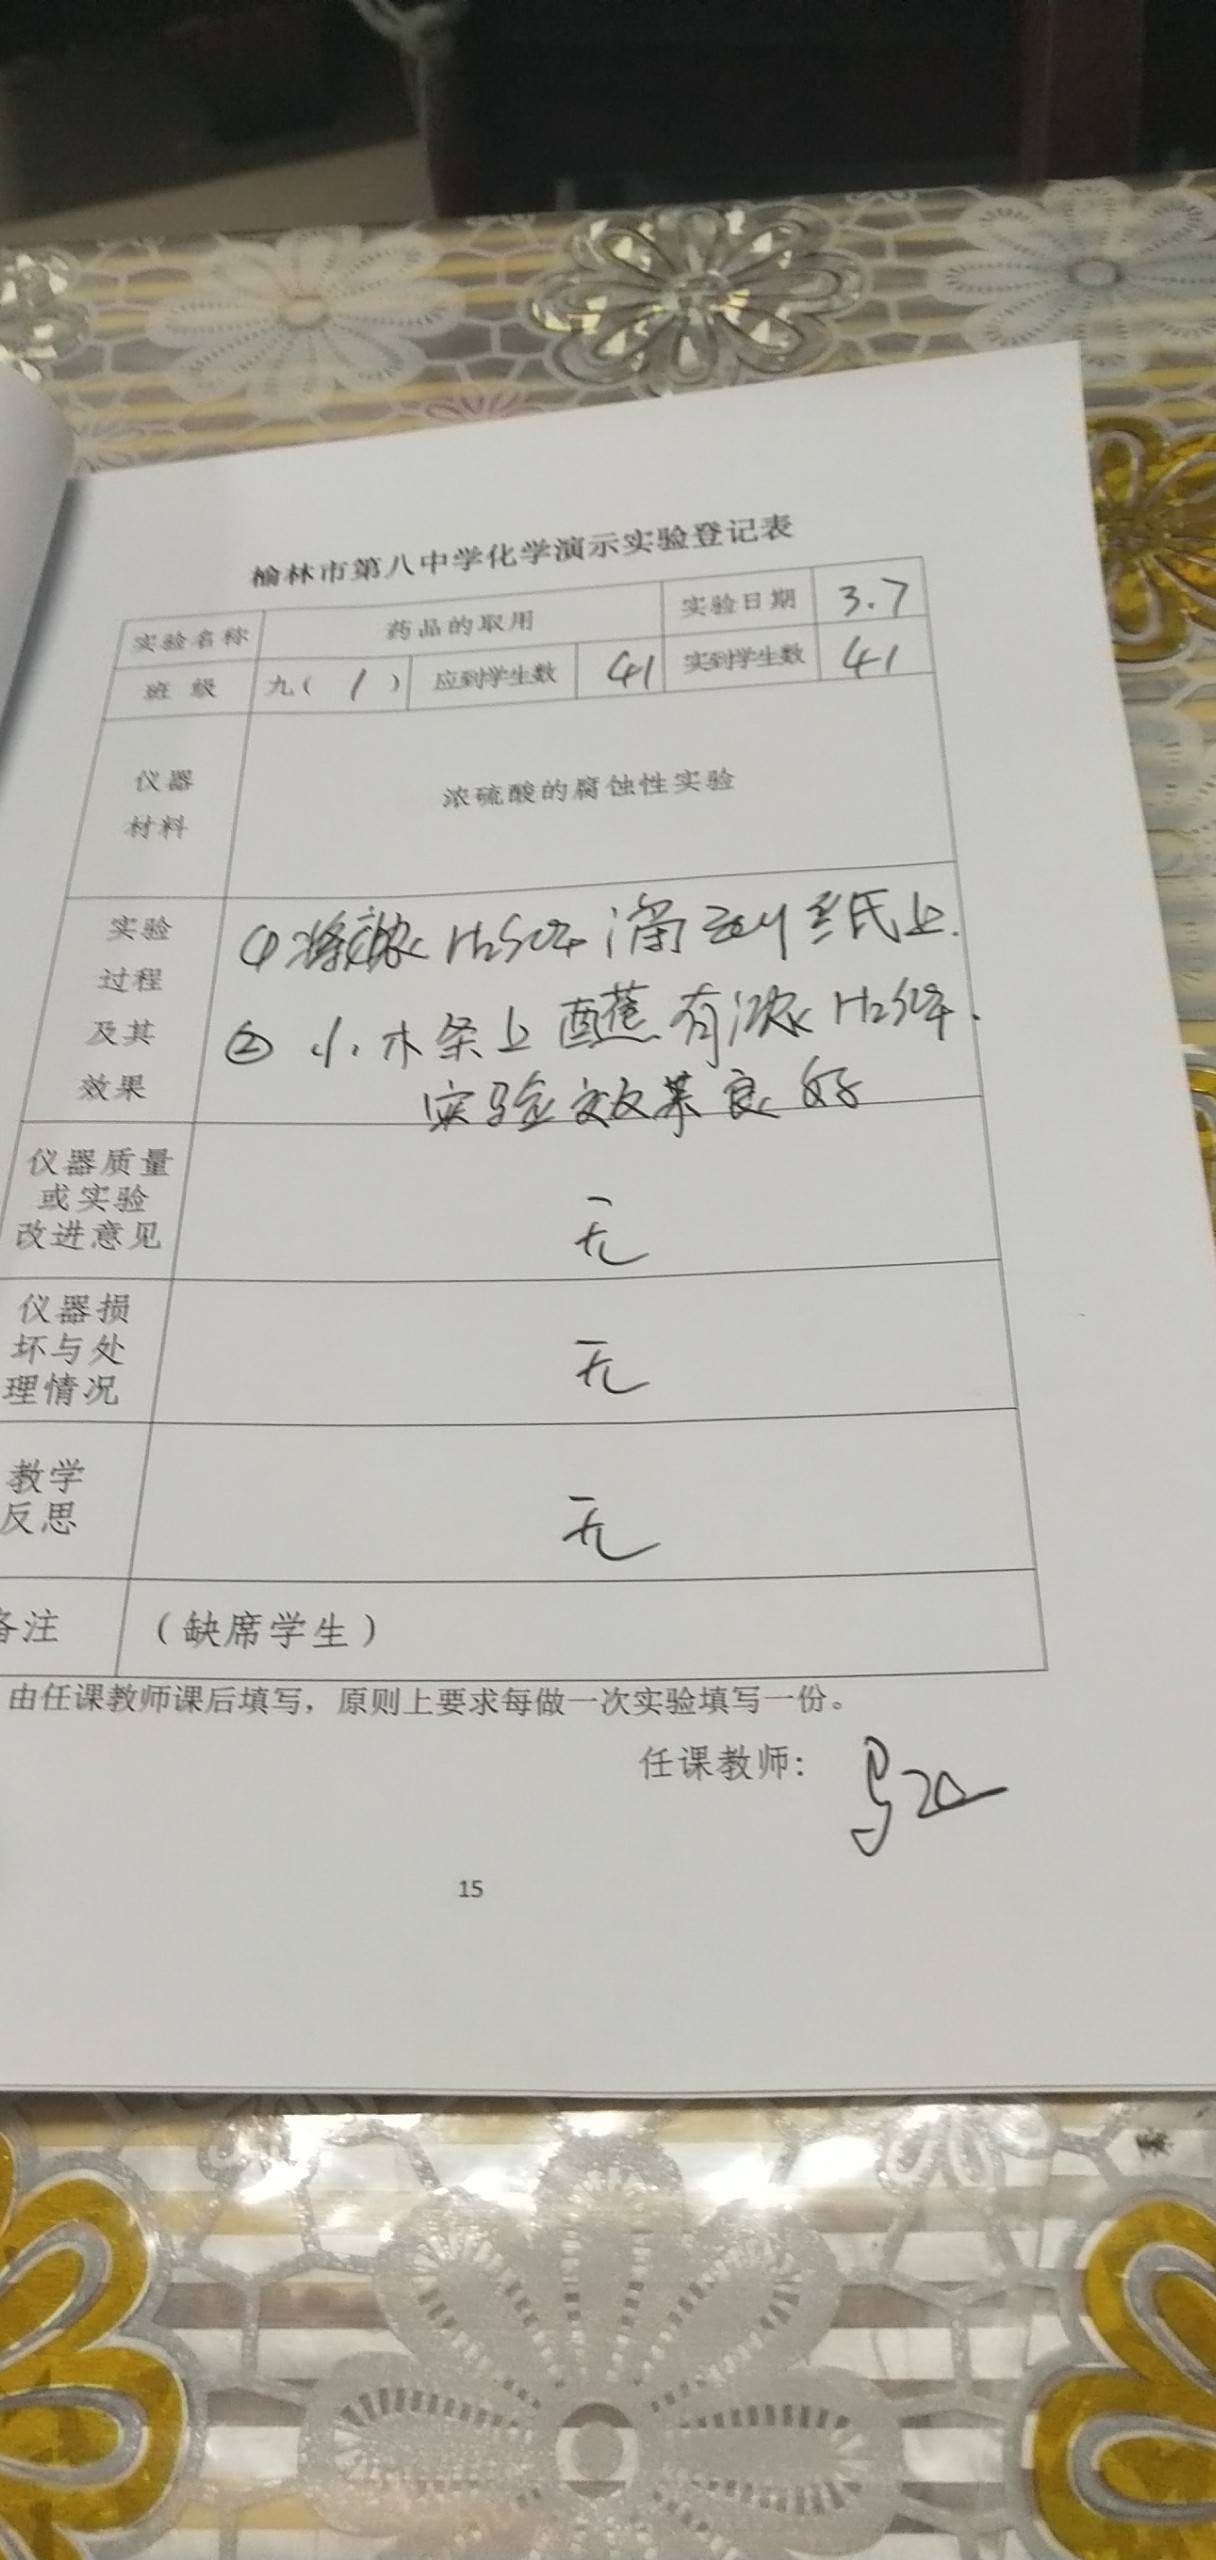 榆林市第八中学化学演示实验登记表
实验名称 药品的取用 实验日期 3.7
班 级 九( 1 ) 应到学生数 41 实到学生数 41
仪器
材料
浓硫酸的腐蚀性实验
实验
过程
及其
效果
①将浓H₂SO₄滴 纸上.
② 小木条上蘸有浓H₂SO₄.
实验效果良好
仪器质量
或实验
改进意见
无
仪器损
坏与处
理情况
无
教学
反思
无
备注 (缺席学生)
由任课教师课后填写，原则上要求每做一次实验填写一份。
任课教师:
15